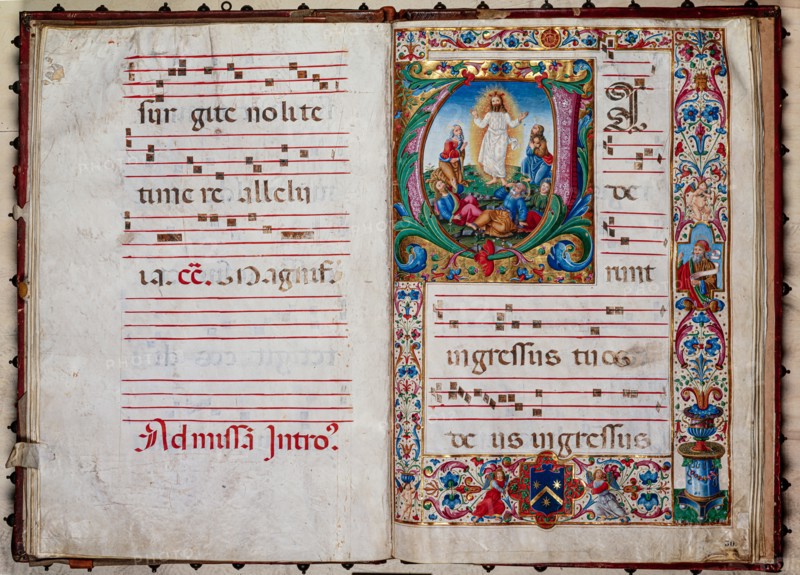 sur gite nolite
time re. allelu
ia. cc̄. Magnif.
Ad missā Intro.
VI
de
runt
ingressus tuos
de us ingressus